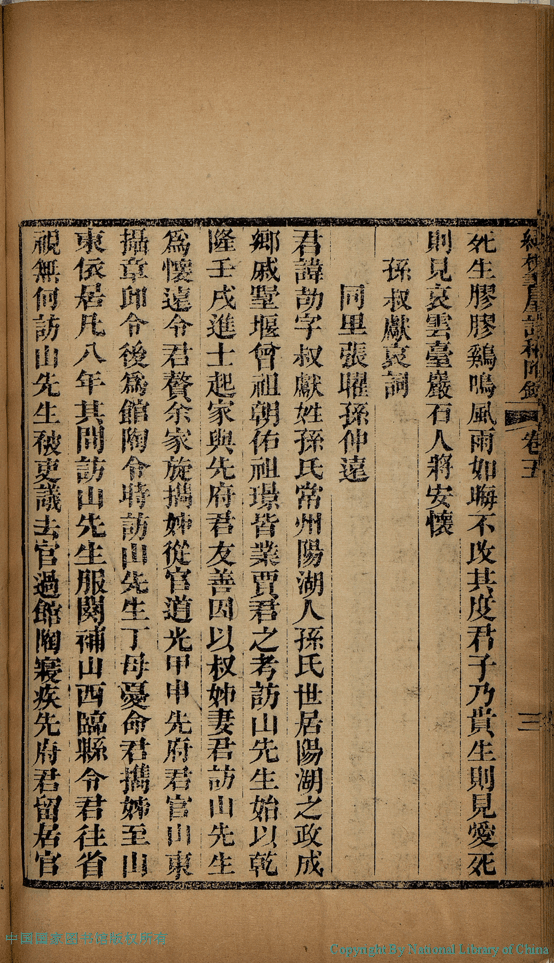 卷五
三
死生膠膠鷄鳴風雨如晦不改其度君子乃貴生則見愛死
則見哀雲臺巖石人將安懷
孫叔獻哀詞
同里張曜孫仲遠
君諱劼字叔獻姓孫氏常州陽湖人孫氏世居陽湖之政成
鄉戚墅堰曾祖朝佑祖璟皆業賈君之考訪山先生始以乾
隆壬戌進士起家與先府君友善因以叔姊妻君訪山先生
為懷遠令君贅余家旋攜姊從官道光甲申先府君官山東
攝章邱令後為館陶令時訪山先生丁母憂命君攜姊至山
東依居凡八年其間訪山先生服闋補山西臨縣令君往省
視無何訪山先生被吏議去官過館陶寢疾先府君留居官
中国国家图书馆版权所有
Copyright By National Library of China